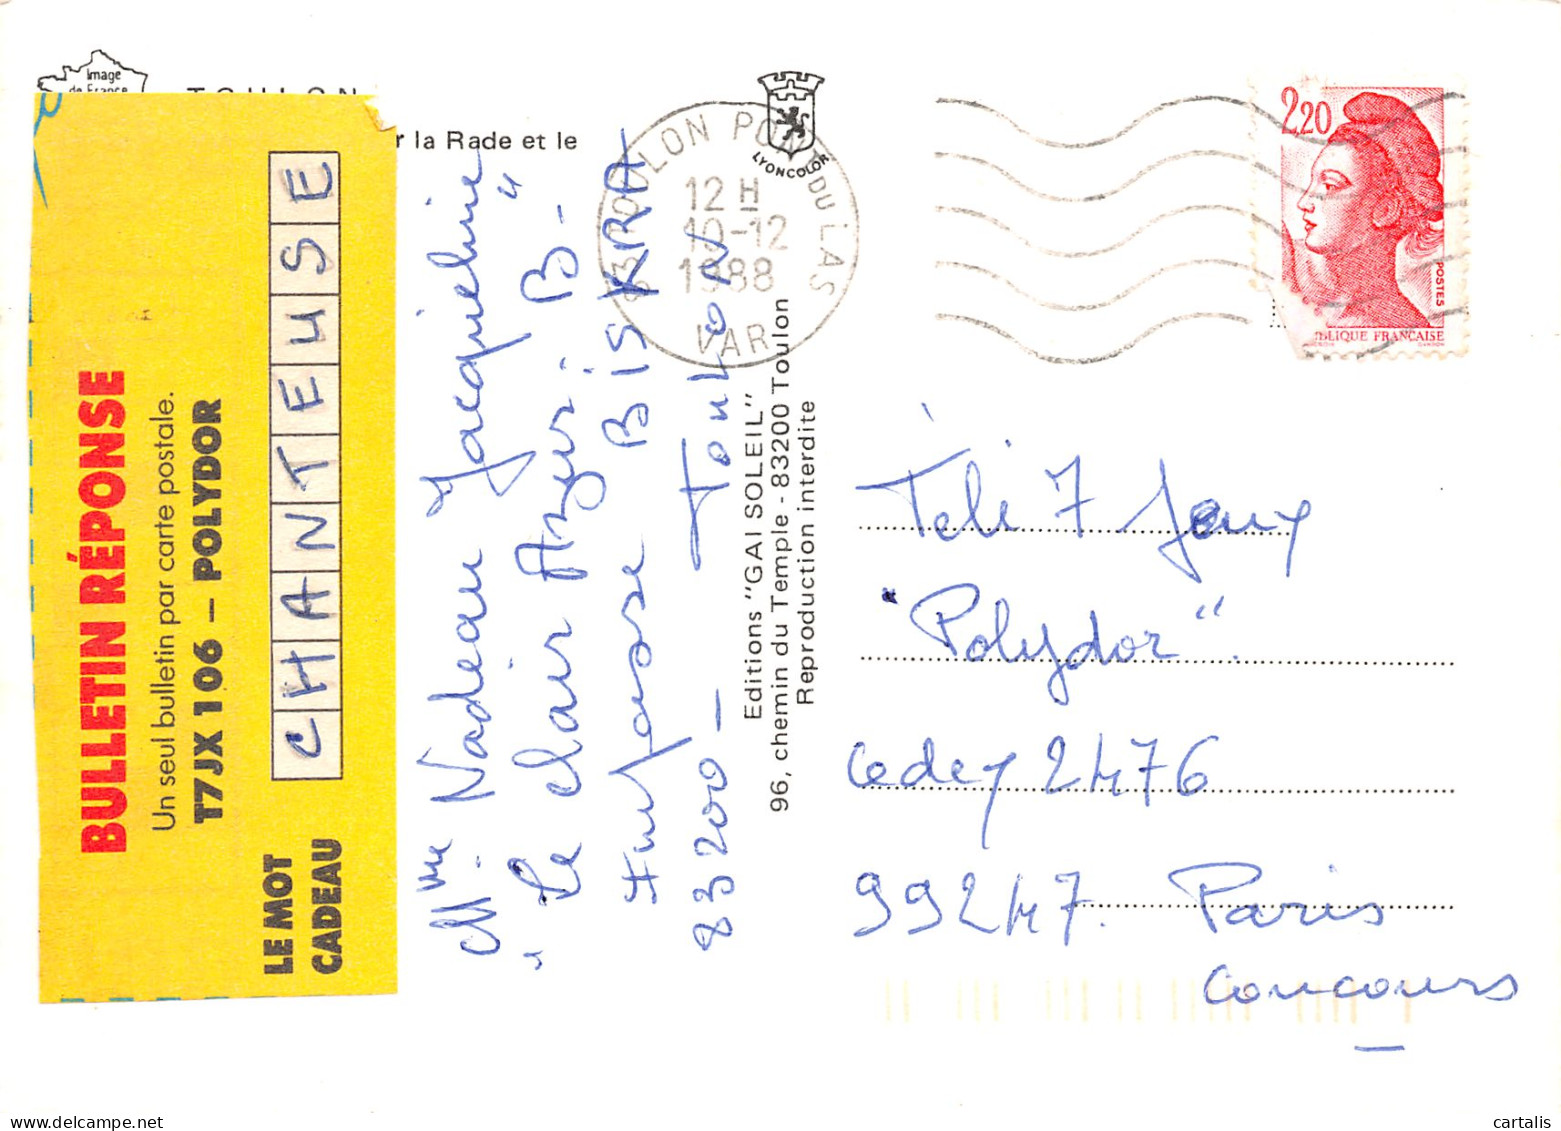 Image
de France
TOULON
r la Rade et le
LYONCOLOR
83 TOULON PONT DU LAS
12 H
10-12
1988
VAR
2,20
POSTES
BLIQUE FRANÇAISE
BULLETIN RÉPONSE
Un seul bulletin par carte postale.
T7JX 106 – POLYDOR
LE MOT
CADEAU
CHANTEUSE
Mme Nadeau Jacqueline
"Le Clair Azur" B-
Impasse BISKRA
83200 – TOULON
Editions "GAI SOLEIL"
96, chemin du Temple - 83200 Toulon
Reproduction interdite
Télé 7 Jeux
"Polydor".
Cedex 2476
99247. Paris
Concours
cartalis